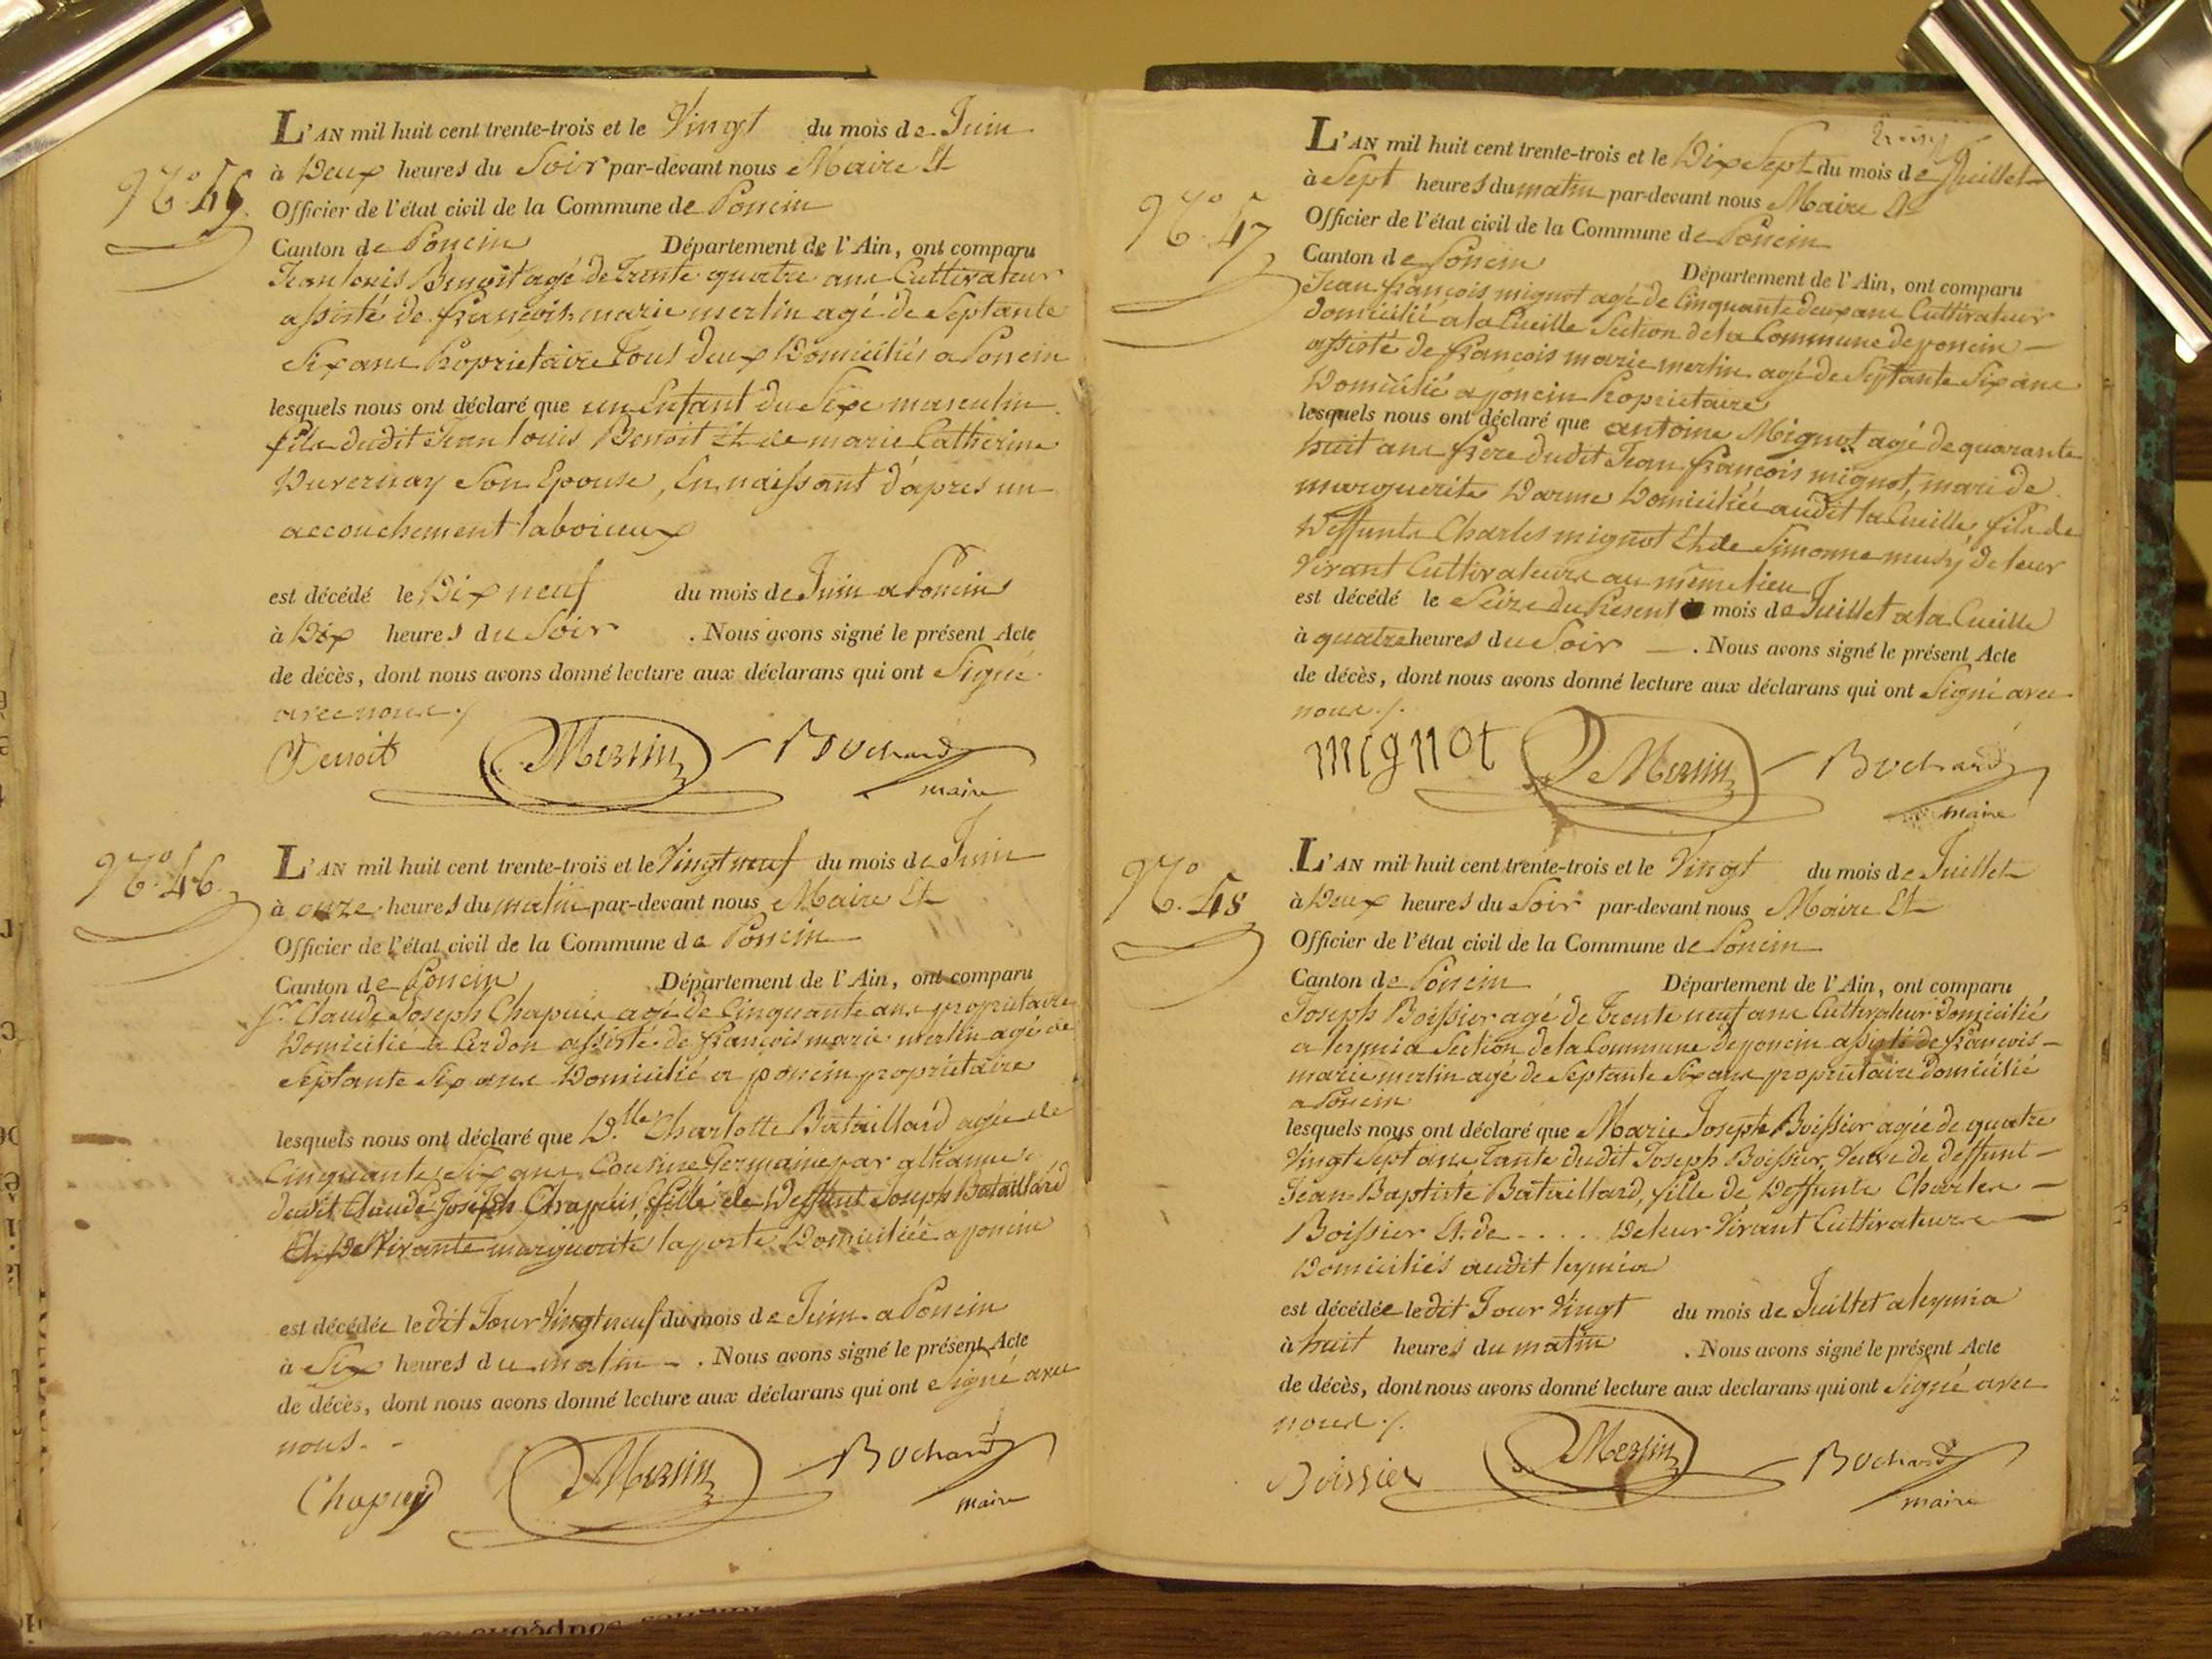 N.° 45.
L'AN mil huit cent trente-trois et le Vingt du mois de Juin
à Deux heures du Soir par-devant nous Maire Et
Officier de l'état civil de la Commune de Poncin
Canton de Poncin Département de l'Ain, ont comparu
Jean Louis Benoit agé de Trente quatre ans Cultivateur
assisté de françois marie merlin agé de Septante
Six ans Proprietaire Tous deux Domiciliés a Poncin
lesquels nous ont déclaré que un Enfant du Sexe masculin
fils dudit Jean Louis Benoit Et de marie Catherine
Duvernay Son Epouse, En naissant d'apres un
accouchement laborieux
est décédé le Dix neuf du mois de Juin a Poncin
à Dix heures du Soir . Nous avons signé le présent Acte
de décès, dont nous avons donné lecture aux déclarans qui ont Signé
avec nous ./.
Benoit Merlin Bochard
maire
N.° 46.
L'AN mil huit cent trente-trois et le Vingt neuf du mois de Juin
à onze heures du matin par-devant nous Maire Et
Officier de l'état civil de la Commune de Poncin
Canton de Poncin Département de l'Ain, ont comparu
Sr. Claude Joseph Chapuis agé de Cinquante ans proprietaire
Domicilié a Cerdon assisté de françois marie merlin agé de
Septante Six ans Domicilié a poncin proprietaire
lesquels nous ont déclaré que D.lle Charlotte Bataillard agée de
Cinquante Six ans Cousine Germaine par alliance
dudit Claude Joseph Chapuis, fille de Deffunt Joseph Bataillard
Et De Vivante marguerite laporte Domiciliée a poncin
est décédée le dit Jour Vingt neuf du mois de Juin a Poncin
à Six heures du matin . Nous avons signé le présent Acte
de décès, dont nous avons donné lecture aux déclarans qui ont Signé avec
nous. -
Chapuy Merlin Bochard
maire
N.° 47
L'AN mil huit cent trente-trois et le Dix Sept du mois de Juillet
à Sept heures du matin par-devant nous Maire Et
Officier de l'état civil de la Commune de Poncin
Canton de Poncin Département de l'Ain, ont comparu
Jean françois mignot agé de Cinquante deux ans Cultivateur
domicilié a la Cueille Section de la Commune de poncin
assisté de françois marie merlin agé de Septante Six ans
Domicilié a poncin Proprietaire
lesquels nous ont déclaré que antoine Mignot agé de quarante
huit ans frère dudit Jean françois mignot, mari de
marguerite Darme Domiciliée audit la Cueille, fils de
Deffunts Charles mignot Et de Simonne de leur
Vivant Cultivateurs au même lieu
est décédé le Seize du Présent mois de Juillet a la Cueille
à quatre heures du Soir . Nous avons signé le présent Acte
de décès, dont nous avons donné lecture aux déclarans qui ont Signé avec
nous ./.
mignot Merlin Bochard
maire
N.° 48
L'AN mil huit cent trente-trois et le Vingt du mois de Juillet
à Deux heures du Soir par-devant nous Maire Et
Officier de l'état civil de la Commune de Poncin
Canton de Poncin Département de l'Ain, ont comparu
Joseph Boissier agé de Trente neuf ans Cultivateur domicilié
a leymia Section de la Commune de poncin assisté de françois
marie merlin agé de Septante Six ans proprietaire domicilié
a Poncin
lesquels nous ont déclaré que Marie Josephe Boissier agée de quatre
Vingt Sept ans Tante dudit Joseph Boissier, Veuve de deffunt
Jean Baptiste Bataillard, fille de Deffunts Charles
Boissier Et de . . . . De leur Vivant Cultivateurs
Domiciliés audit leymia
est décédée le dit Jour Vingt du mois de Juillet a leymia
à huit heures du matin . Nous avons signé le présent Acte
de décès, dont nous avons donné lecture aux déclarans qui ont Signé avec
nous ./.
Boissier Merlin Bochard
maire